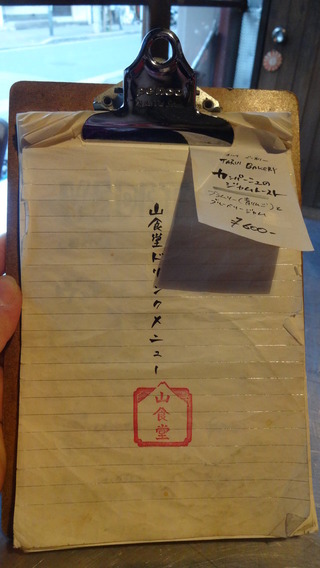 山食堂ドリンクメニュー
山食堂
TARUI BAKERY
カンパーニュの
ジャムトースト
ブルーベリージャム
¥600-